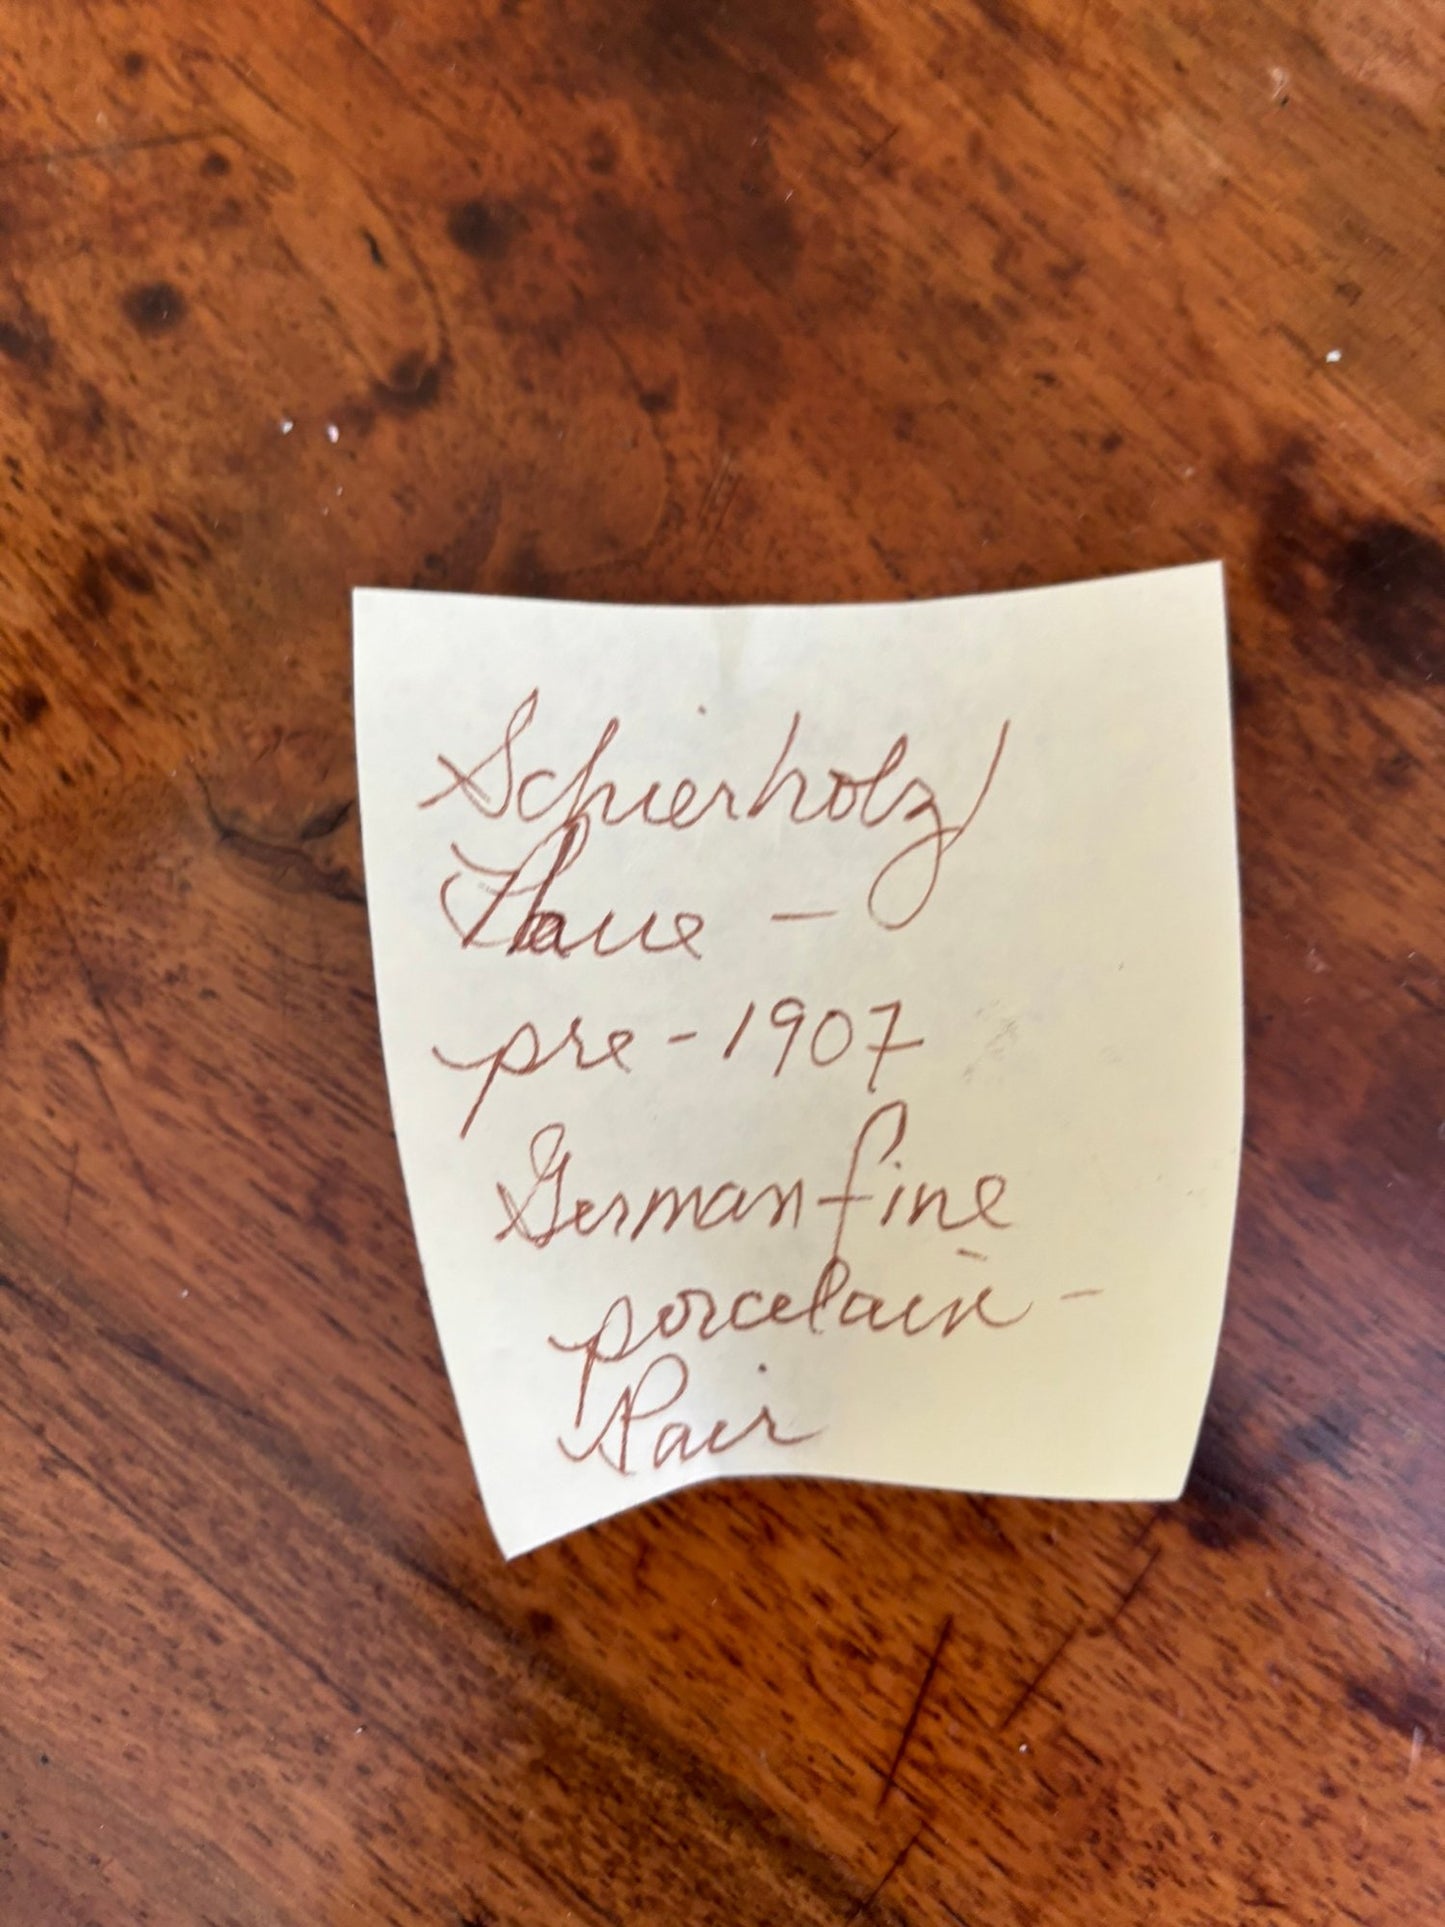 Schierholz/
Plaue –
pre-1907
German fine
porcelain –
Pair